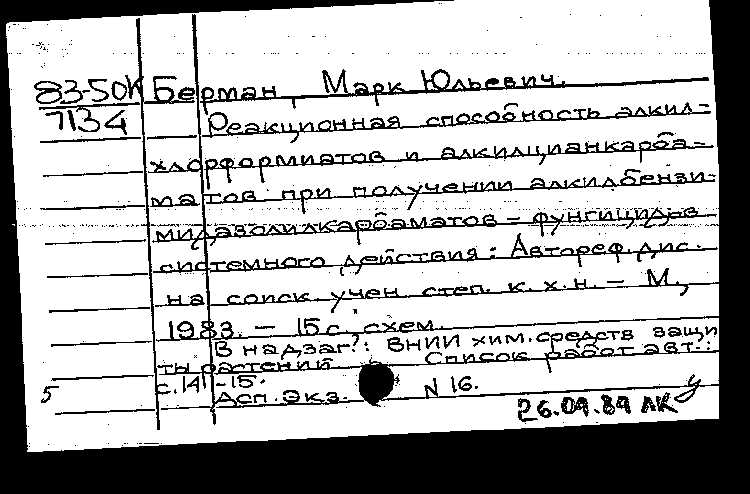 83-50К Берман, Марк Юльевич.
7134 Реакционная способность алкил=
хлорформиатов и алкилцианкарба=
матов при получении алкилбензи=
мидазолилкарбаматов = фунгицидов
системного действия: Автореф. дис.
на соиск. учен. степ. к. х. н. – М.,
1983. – 15 с., схем.
В надзаг.: ВНИИ хим. средств защи
ты растений. Список работ авт.:
с. 14-15.
5 Асп. Экз. N 16.
26.09.89 ЛК